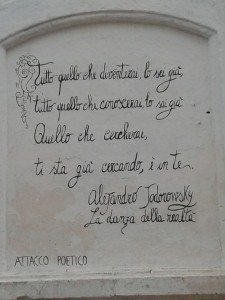 Tutto quello che diventerai, lo sei già,
tutto quello che conoscerai, lo sai già
Quello che cercherai,
ti sta già cercando, è in te.
Alejandro Jodorowsky
La danza della realtà
ATTACCO POETICO